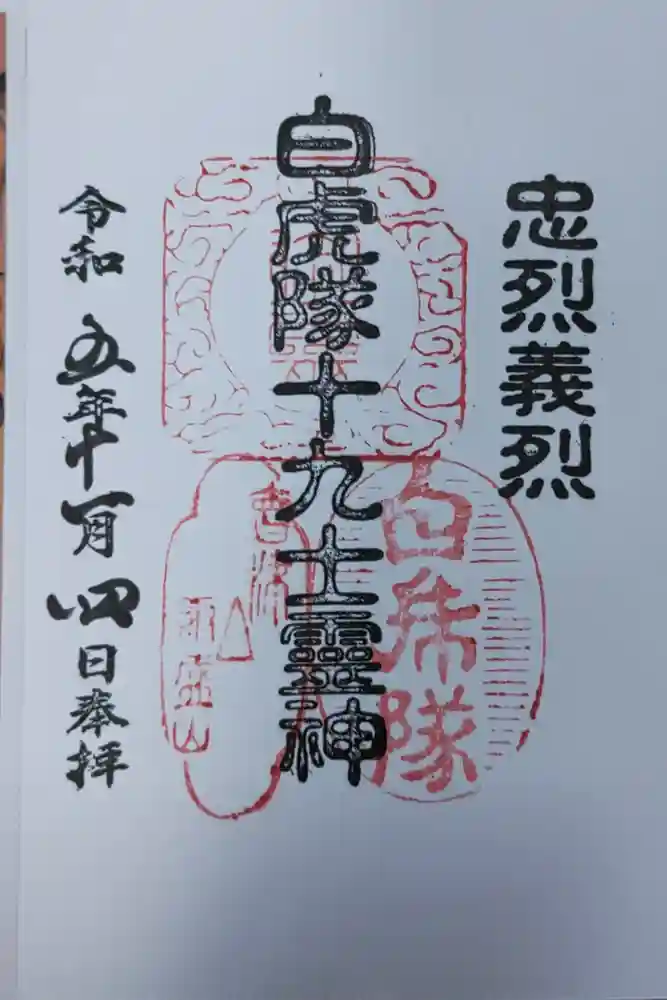 忠烈義烈
白虎隊十九士霊神
白虎隊
会津
飯盛山
令和五年十一月四日奉拝